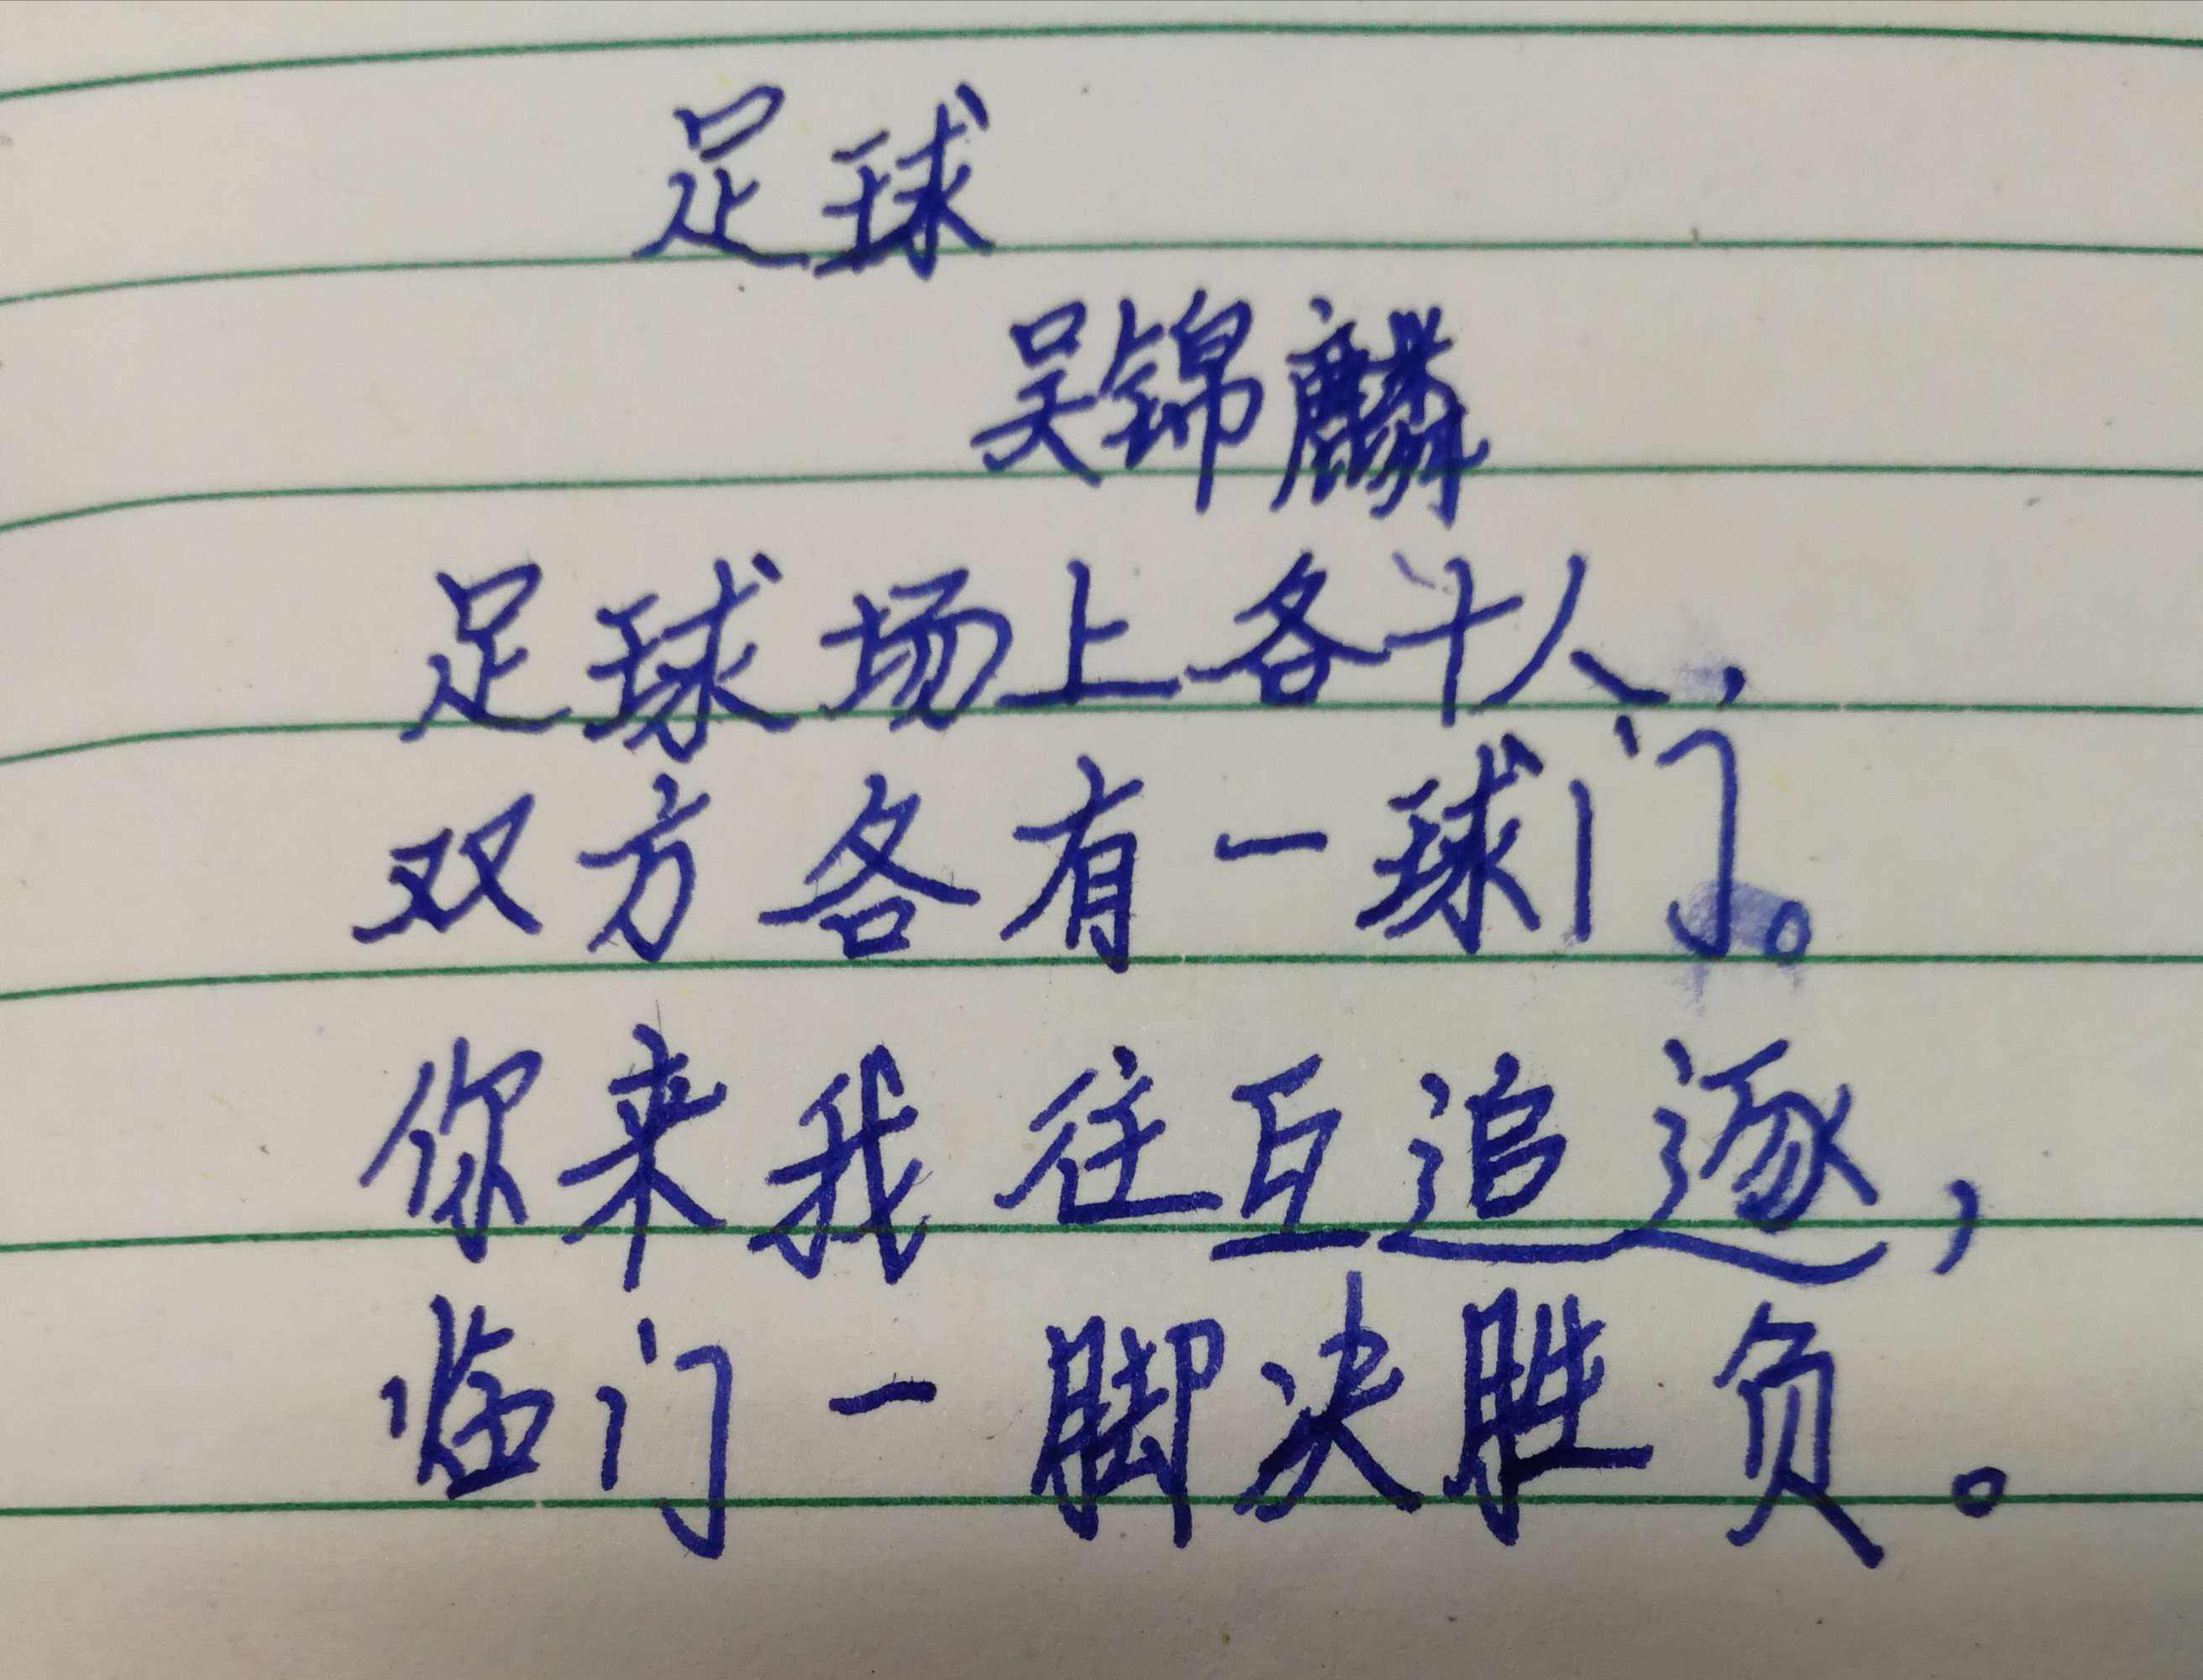 足球
吴锦麟
足球场上各十人，
双方各有一球门。
你来我往互追逐，
临门一脚决胜负。